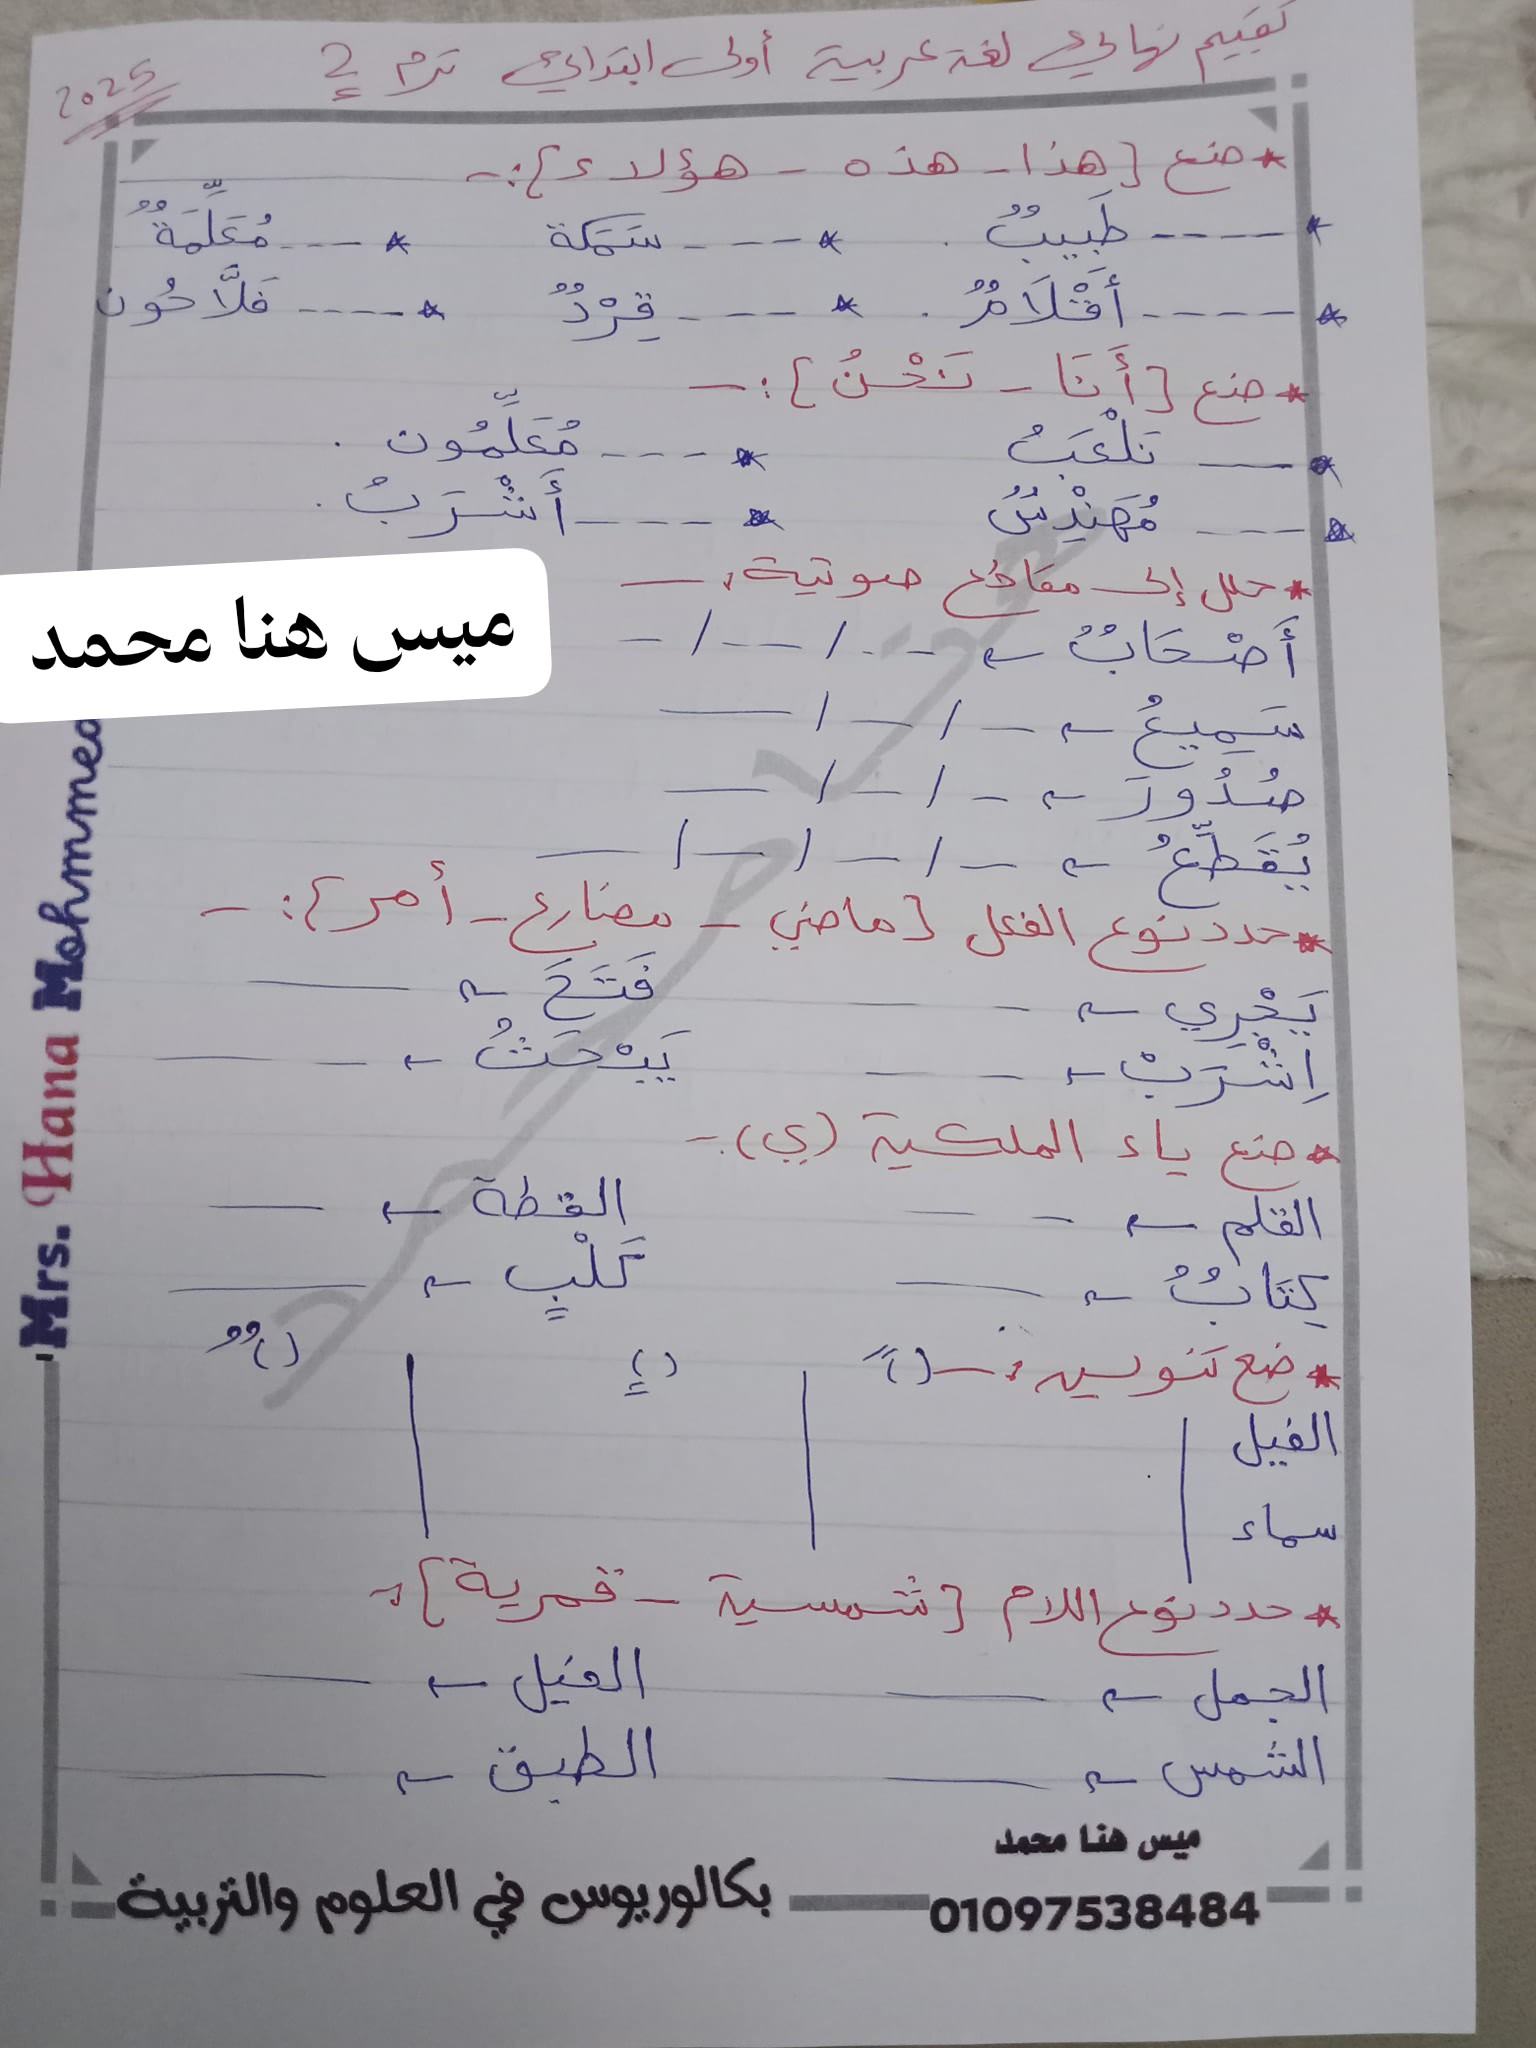 تقييم نهائي لغة عربية أولى ابتدائي ترم 2
2025
* ضع [هذا - هذه - هؤلاء]:-
* ---- طَبِيبٌ . * --- سَمَكة * --- مُعَلِّمَةٌ
* ---- أَقْلَامٌ . * --- قِرْدٌ * ---- فَلَّاحُون
* ضع [أَنَا - نَحْنُ]:-
* --- نَلْعَبُ * --- مُعَلِّمُون .
* --- مُهَنْدِسٌ * --- أَشْرَبُ .
* حلل إلى مقاطع صوتية :-
أَصْحَابٌ ← --- / --- / -
سَمِيعُ ← - / - / -
صُدُورَ ← - / - / -
يُقَطِّعُ ← - / - / - / -
* حدد نوع الفعل [ماضي - مضارع - أمر]:-
يَجْرِي ← - - فَتَحَ ← -
اِشْرَبْ ← - - يَبْحَثُ ← - -
* ضع ياء الملكية (ي) :-
القلم ← - - القطة ← -
كِتَابٌ ← - كَلْبٍ ← -
* ضع تنوين :- ( ً ) ( ٍ ) ( ٌ )
الفيل
سماء
* حدد نوع اللام [شمسية - قمرية]:-
الجمل ← - الفيل ← -
الشمس ← - الطبق ← -
ميس هنا محمد
Mrs. Hana Mohmmed
ميس هنا محمد
01097538484
بكالوريوس في العلوم والتربية